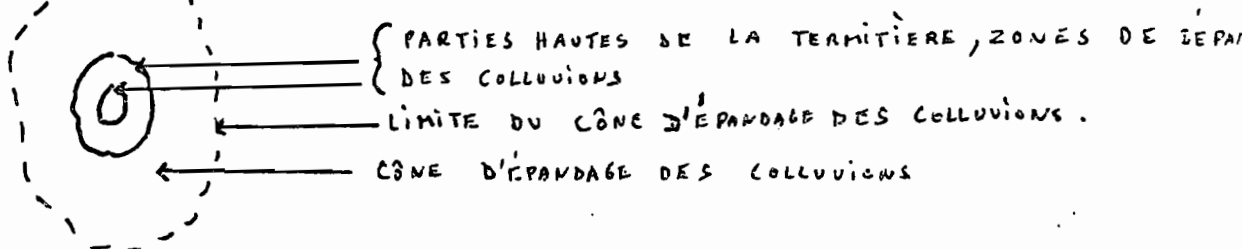 PARTIES HAUTES DE LA TERMITIÈRE, ZONES DE
DES COLLUVIONS
LIMITE DU CÔNE D'ÉPANDAGE DES COLLUVIONS.
CÔNE D'ÉPANDAGE DES COLLUVIONS